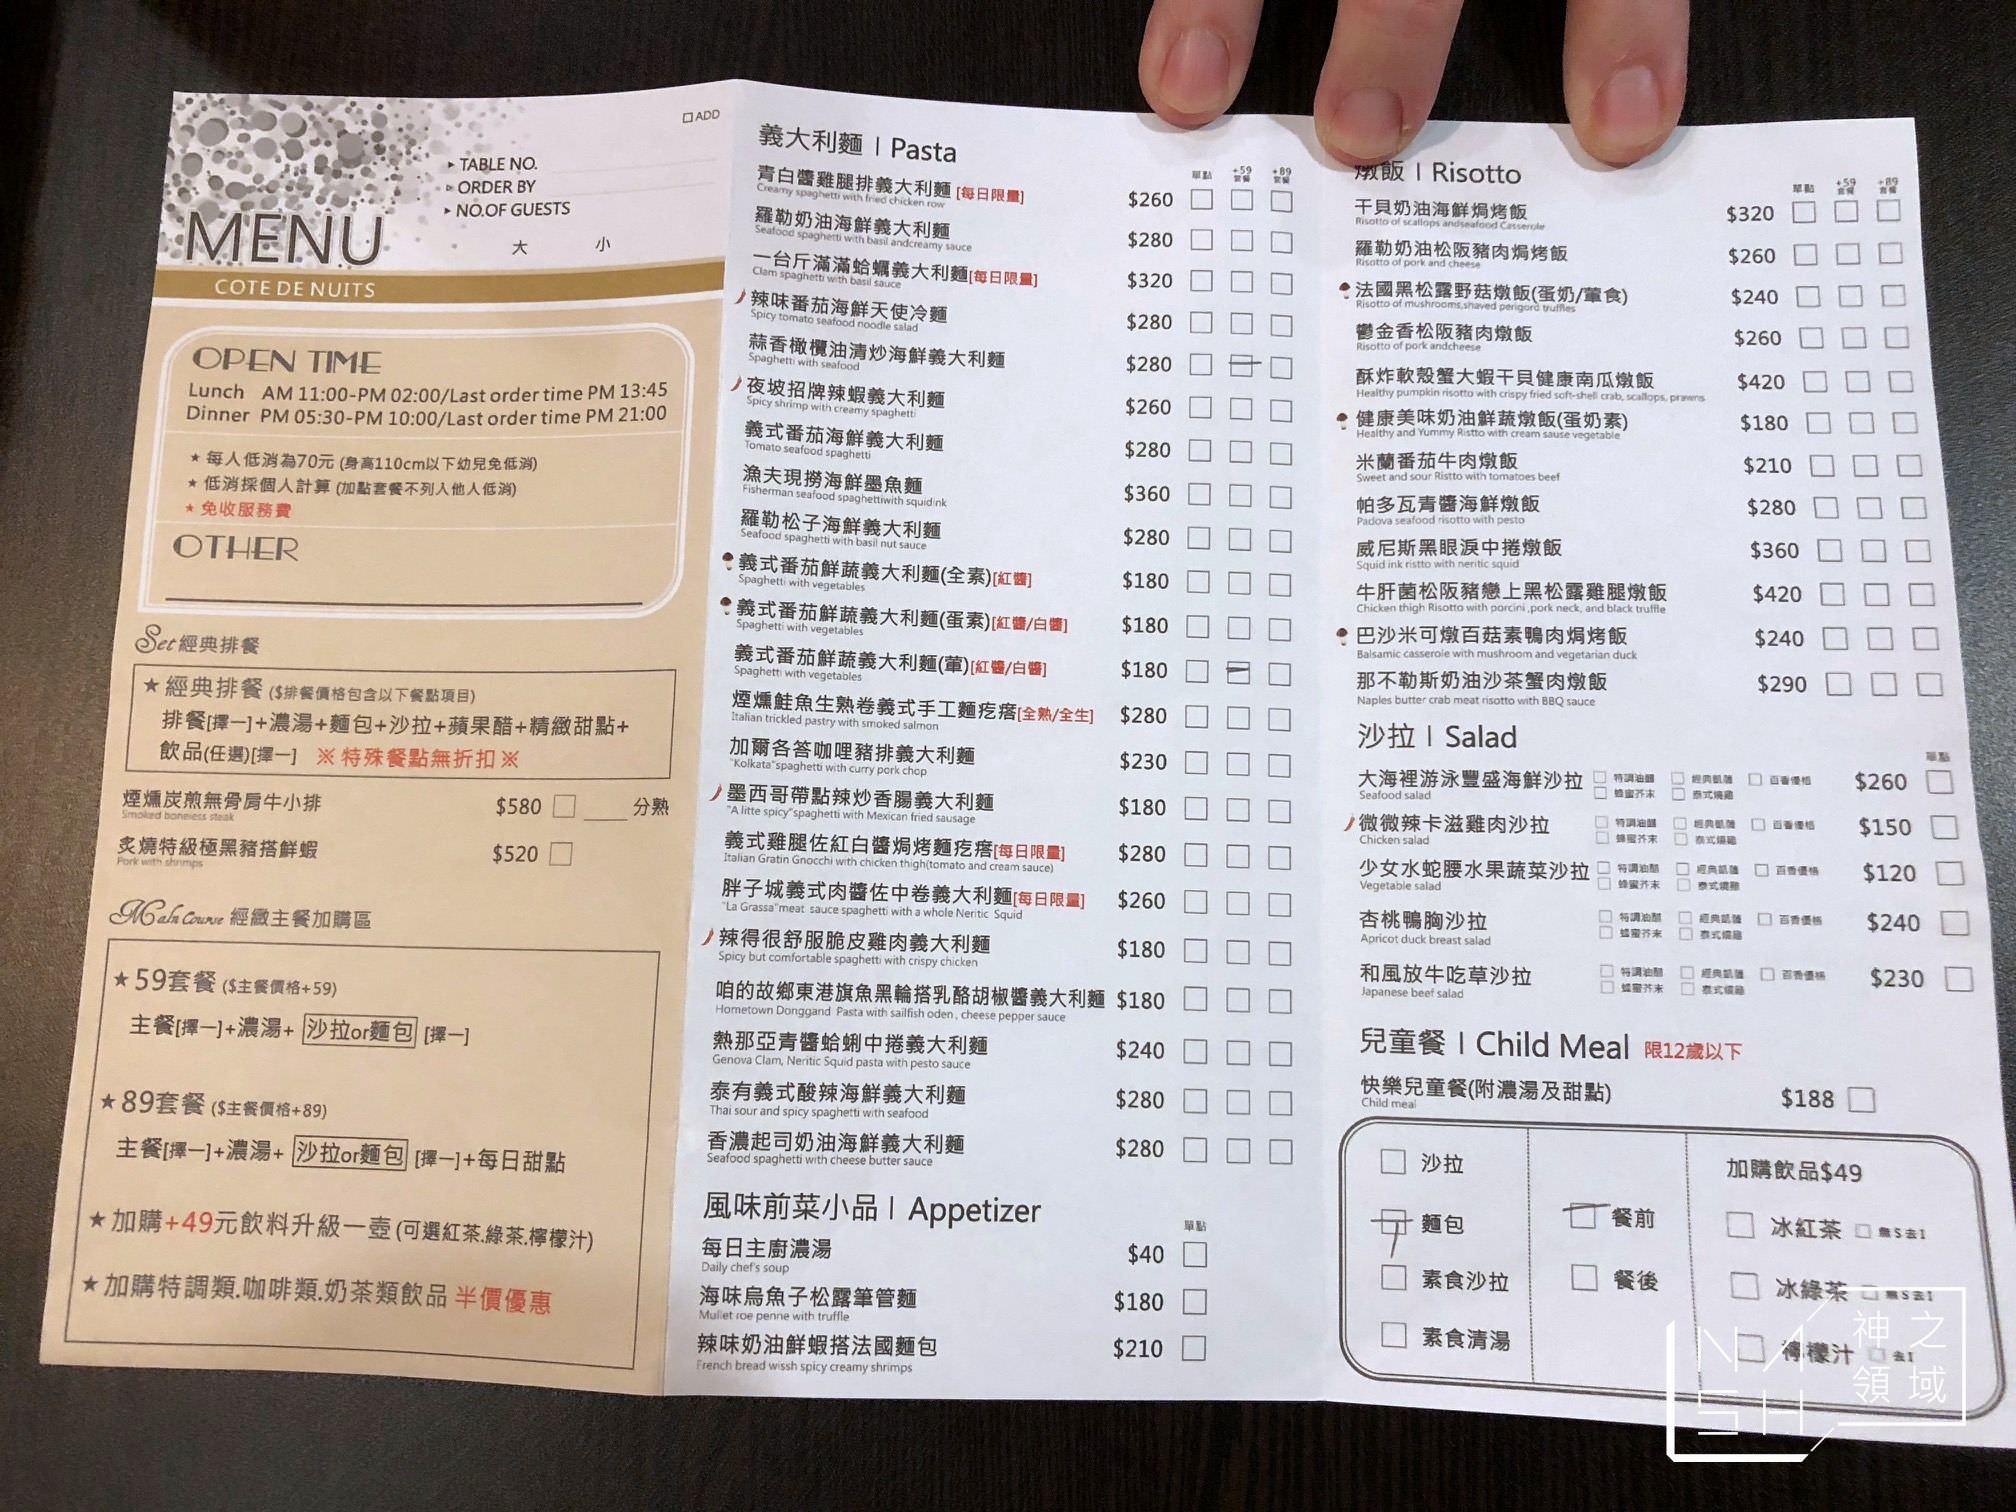 ADD
TABLE NO.
ORDER BY
NO.OF GUESTS
大 小
MENU
COTE DE NUITS
OPEN TIME
Lunch AM 11:00-PM 02:00/Last order time PM 13:45
Dinner PM 05:30-PM 10:00/Last order time PM 21:00
★ 每人低消為70元 (身高110cm以下幼兒免低消)
★ 低消採個人計算 (加點套餐不列入他人低消)
★ 免收服務費
OTHER
Set 經典排餐
★ 經典排餐 ($排餐價格包含以下餐點項目)
排餐[擇一]+濃湯+麵包+沙拉+蘋果醋+精緻甜點+
飲品(任選)[擇一] ※特殊餐點無折扣※
煙燻炭煎無骨肩牛小排 $580 分熟
Smoked boneless steak
炙燒特級極黑豬搭鮮蝦 $520
Pork with shrimps
Main Course 經緻主餐加購區
★ 59套餐 ($主餐價格+59)
主餐[擇一]+濃湯+ 沙拉or麵包 [擇一]
★ 89套餐 ($主餐價格+89)
主餐[擇一]+濃湯+ 沙拉or麵包 [擇一]+每日甜點
★ 加購+49元飲料升級一壺 (可選紅茶.綠茶.檸檬汁)
★ 加購特調類.咖啡類.奶茶類飲品 半價優惠
義大利麵 | Pasta
單點 +59套餐 +89套餐
青白醬雞腿排義大利麵 [每日限量] $260
Creamy spaghetti with fried chicken row
羅勒奶油海鮮義大利麵 $280
Seafood spaghetti with basil andcreamy sauce
一台斤滿滿蛤蠣義大利麵[每日限量] $320
Clam spaghetti with basil sauce
辣味番茄海鮮天使冷麵 $280
Spicy tomato seafood noodle salad
蒜香橄欖油清炒海鮮義大利麵 $280
Spaghetti with seafood
夜坡招牌辣蝦義大利麵 $260
Spicy shrimp with creamy spaghetti
義式番茄海鮮義大利麵 $280
Tomato seafood spaghetti
漁夫現撈海鮮墨魚麵 $360
Fisherman seafood spaghettiwith squidink
羅勒松子海鮮義大利麵 $280
Seafood spaghetti with basil nut sauce
義式番茄鮮蔬義大利麵(全素)[紅醬] $180
Spaghetti with vegetables
義式番茄鮮蔬義大利麵(蛋素)[紅醬/白醬] $180
Spaghetti with vegetables
義式番茄鮮蔬義大利麵(葷)[紅醬/白醬] $180
Spaghetti with vegetables
煙燻鮭魚生熟卷義式手工麵疙瘩[全熟/全生] $280
Italian trickled pastry with smoked salmon
加爾各答咖哩豬排義大利麵 $230
"Kolkata"spaghetti with curry pork chop
墨西哥帶點辣炒香腸義大利麵 $180
"A litte spicy"spaghetti with Mexican fried sausage
義式雞腿佐紅白醬焗烤麵疙瘩[每日限量] $280
Italian Gratin Gnocchi with chicken thigh(tomato and cream sauce)
胖子城義式肉醬佐中卷義大利麵[每日限量] $260
"La Grassa"meat sauce spaghetti with a whole Neritic Squid
辣得很舒服脆皮雞肉義大利麵 $180
Spicy but comfortable spaghetti with crispy chicken
咱的故鄉東港旗魚黑輪搭乳酪胡椒醬義大利麵 $180
Hometown Donggand Pasta with sailfish oden, cheese pepper sauce
熱那亞青醬蛤蜊中捲義大利麵 $240
Genova Clam, Neritic Squid pasta with pesto sauce
泰有義式酸辣海鮮義大利麵 $280
Thai sour and spicy spaghetti with seafood
香濃起司奶油海鮮義大利麵 $280
Seafood spaghetti with cheese butter sauce
風味前菜小品 | Appetizer
單點
每日主廚濃湯 $40
Daily chef's soup
海味烏魚子松露筆管麵 $180
Mullet roe penne with truffle
辣味奶油鮮蝦搭法國麵包 $210
French bread wissh spicy creamy shrimps
燉飯 | Risotto
單點 +59套餐 +89套餐
干貝奶油海鮮焗烤飯 $320
Risotto of scallops andseafood Casserole
羅勒奶油松阪豬肉焗烤飯 $260
Risotto of pork and cheese
法國黑松露野菇燉飯(蛋奶/葷食) $240
Risotto of mushrooms,shaved perigord truffles
鬱金香松阪豬肉燉飯 $260
Risotto of pork andcheese
酥炸軟殼蟹大蝦干貝健康南瓜燉飯 $420
Healthy pumpkin risotto with crispy fried soft-shell crab, scallops, prawns
健康美味奶油鮮蔬燉飯(蛋奶素) $180
Healthy and Yummy Ristto with cream sause vegetable
米蘭番茄牛肉燉飯 $210
Sweet and sour Ristto with tomatoes beef
帕多瓦青醬海鮮燉飯 $280
Padova seafood risotto with pesto
威尼斯黑眼淚中捲燉飯 $360
Squid ink ristto with neritic squid
牛肝菌松阪豬戀上黑松露雞腿燉飯 $420
Chicken thigh Risotto with porcini ,pork neck, and black truffle
巴沙米可燉百菇素鴨肉焗烤飯 $240
Balsamic casserole with mushroom and vegetarian duck
那不勒斯奶油沙茶蟹肉燉飯 $290
Naples butter crab meat risotto with BBQ sauce
沙拉 | Salad
單點
大海裡游泳豐盛海鮮沙拉 特調油醋 經典凱薩 百香優格 $260
Seafood salad 蜂蜜芥末 泰式燒雞
微微辣卡滋雞肉沙拉 特調油醋 經典凱薩 百香優格 $150
Chicken salad 蜂蜜芥末 泰式燒雞
少女水蛇腰水果蔬菜沙拉 特調油醋 經典凱薩 百香優格 $120
Vegetable salad 蜂蜜芥末 泰式燒雞
杏桃鴨胸沙拉 特調油醋 經典凱薩 百香優格 $240
Apricot duck breast salad 蜂蜜芥末 泰式燒雞
和風放牛吃草沙拉 特調油醋 經典凱薩 百香優格 $230
Japanese beef salad 蜂蜜芥末 泰式燒雞
兒童餐 | Child Meal 限12歲以下
快樂兒童餐(附濃湯及甜點) $188
Child meal
沙拉
麵包
素食沙拉
素食清湯
餐前
餐後
加購飲品$49
冰紅茶 無S去I
冰綠茶 無S去I
檸檬汁 去I
NASH
神之領域